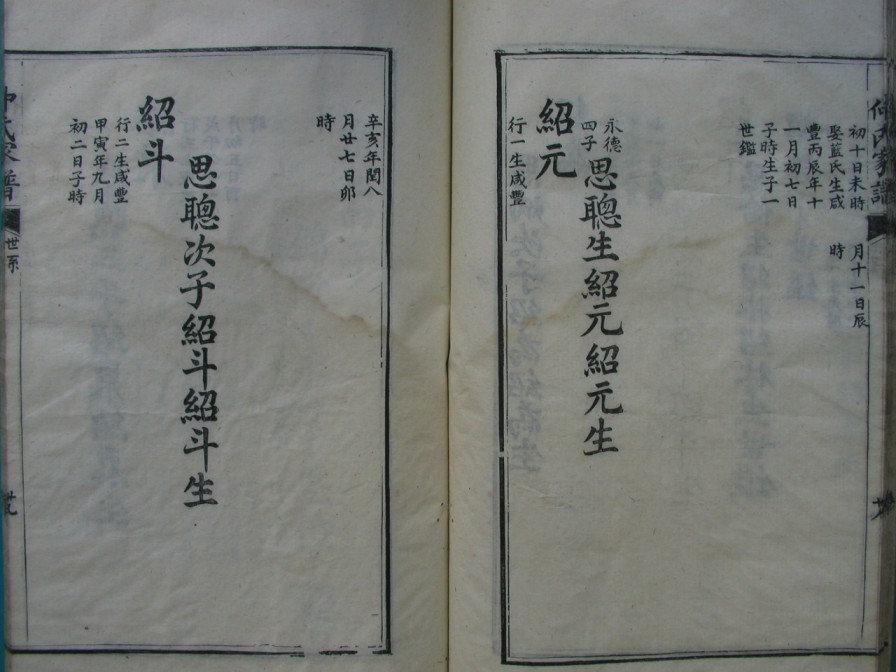 何氏家譜
初十日未時
娶藍氏生咸
豐丙辰年十
一月初七日
子時生子一
世鑑
月十一日辰
時
思聰生紹元紹元生
永德
四子
紹元
行一生咸豐
辛亥年閏八
月廿七日卯
時
思聰次子紹斗紹斗生
紹斗
行二生咸豐
甲寅年九月
初二日子時
氏家譜
世系